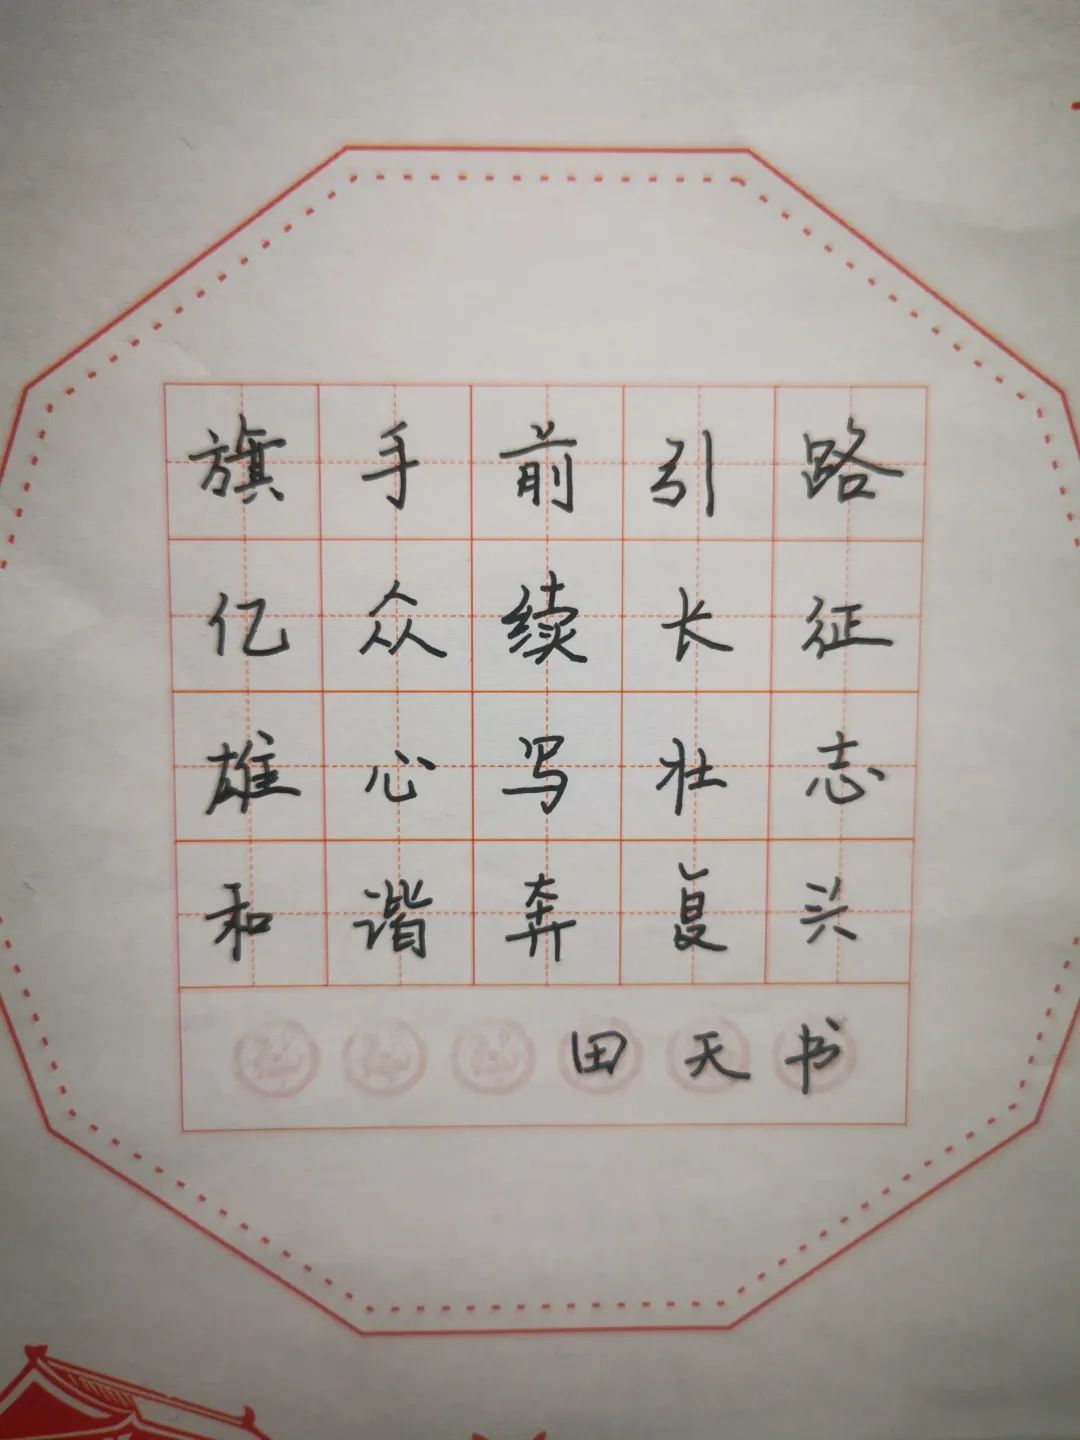 旗手前引路
亿众续长征
雄心写壮志
和谐奔复兴
田天书